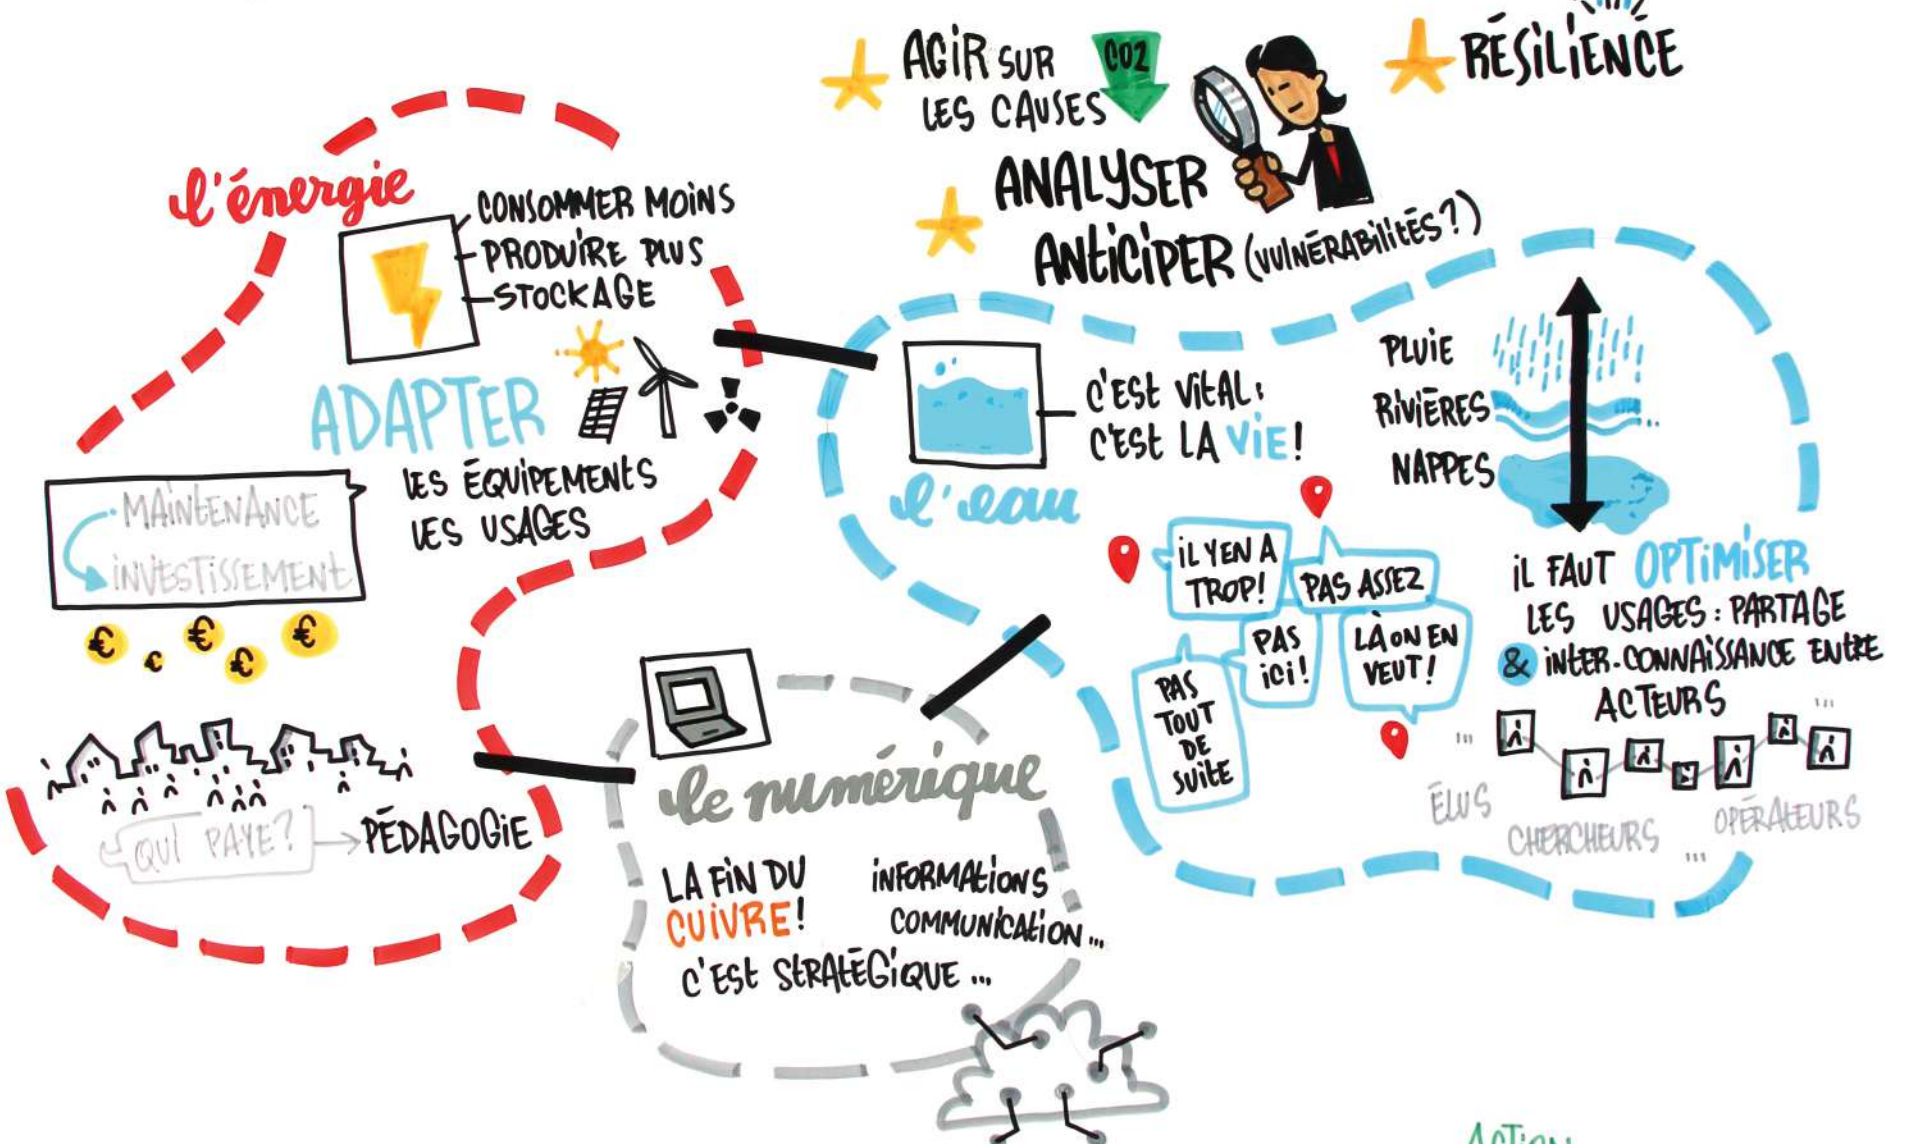 AGIR SUR
LES CAUSES
CO2
RÉSILIENCE
ANALYSER
ANTICIPER (VULNÉRABILITÉS?)
l'énergie
CONSOMMER MOINS
PRODUIRE PLUS
STOCKAGE
ADAPTER
LES ÉQUIPEMENTS
LES USAGES
MAINTENANCE
INVESTISSEMENT
€ € € € €
QUI PAYE?
PÉDAGOGIE
l'eau
C'EST VITAL:
C'EST LA VIE!
PLUIE
RIVIÈRES
NAPPES
IL Y EN A
TROP!
PAS ASSEZ
PAS
ICI!
LÀ ON EN
VEUT!
PAS
TOUT
DE
SUITE
IL FAUT OPTIMISER
LES USAGES: PARTAGE
& INTER-CONNAISSANCE ENTRE
ACTEURS
...
...
ÉLUS
CHERCHEURS
...
OPÉRATEURS
le numérique
LA FIN DU
CUIVRE!
INFORMATIONS
COMMUNICATION...
C'EST STRATÉGIQUE...
ACTION